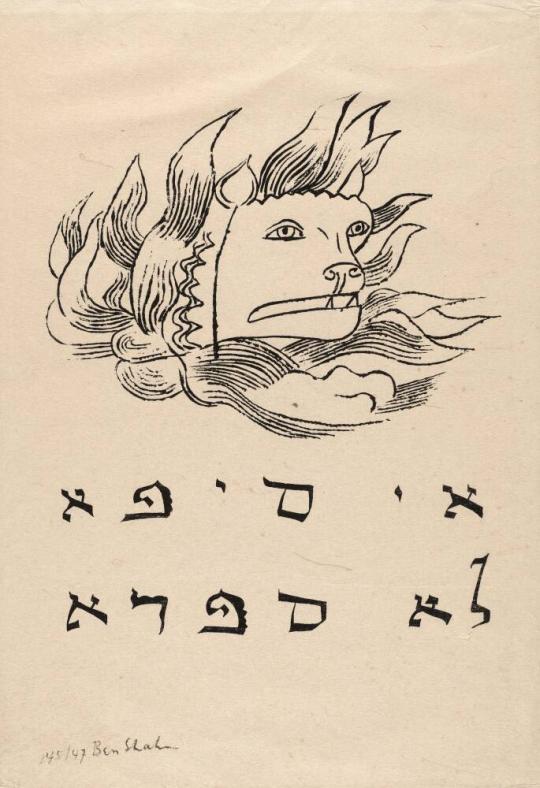 אי סיפא
לא ספרא
145/47 Ben Shahn